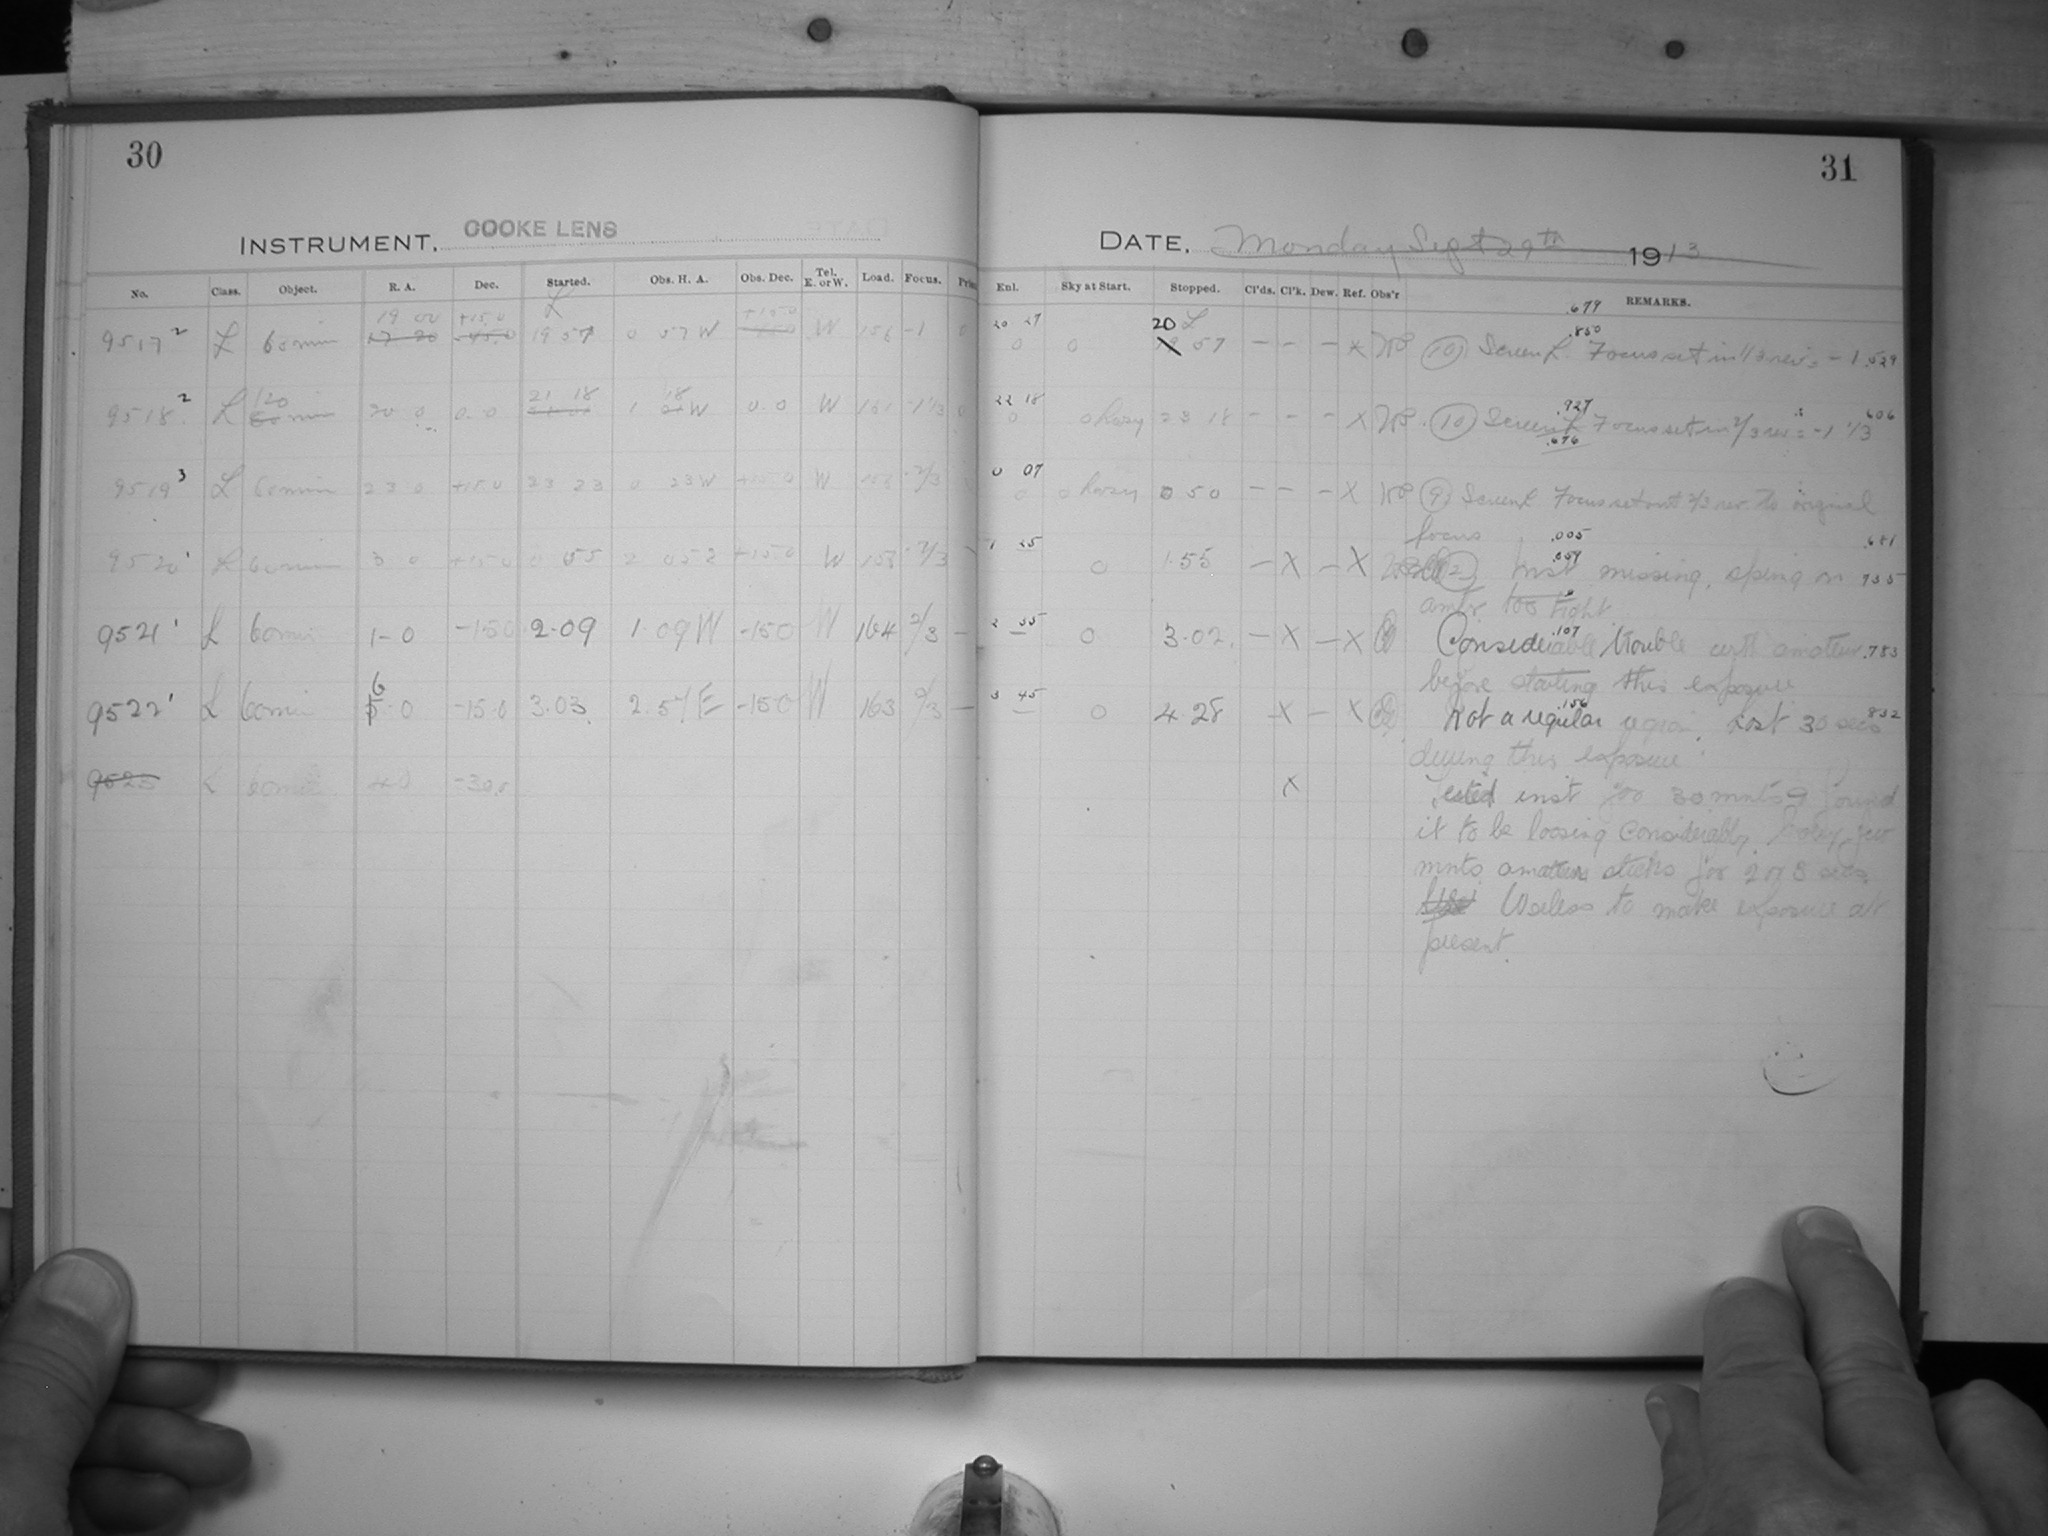 30
31
INSTRUMENT. COOKE LENS
DATE. Monday Sept 29th 1913
No. Class. Object. R. A. Dec. Started. Obs. H. A. Obs. Dec. Tel. E. or W. Load. Focus. Enl. Sky at Start. Stopped. Cl'ds. Cl'k. Dew. Ref. Obs'r REMARKS.
.679
19 00 +15.0 L +15.0 20 27 20 L .850
9517 2 L 60 min 17 20 -45.0 19 57 0 57 W W 156 -1 0 0 0 19 57 – – – x (10) Screen L Focus set in 1/3 rev = -1 .529
120 21 18 18 22 18 .927 .606
9518 2 L 60 min 20 0 0.0 1 W 0.0 W 161 -1 1/3 0 0 0 hazy 23 18 – – – x (10) Screen L Focus set in 2/3 rev = -1 1/3
.676
0 07
9519 3 L 60 min 23 0 +15.0 23 23 0 23 W +15.0 W 158 2/3 0 0 hazy 0 50 – – – x (9) Screen L Focus set out 2/3 rev to original
focus .005 .681
1 25 .054
9520 1 L 60 min 3 0 +15.0 0 55 2 05 E +15.0 W 158 2/3 – 0 1.55 – x – x Inst missing, spring on 735
amtr. too tight
2 35 .107
9521 1 L 60 min 1-0 -15.0 2.09 1.09 W -15.0 W 164 2/3 – – 0 3.02. – x – x Considerable trouble with amateur .783
before starting this exposure
6 3 45 .156 832
9522 1 L 60 min 5.0 -15.0 3.03 2.57 E -15.0 W 163 2/3 – – 0 4.28 – x – x Not a regular region. Lost 30 secs
during this exposure
9523 L 60 min 4 0 -30.0 x Tested inst for 30 mnts & found
it to be loosing considerably. Every few
mnts amature sticks for 2 or 3 secs
Useless to make exposure at
present.